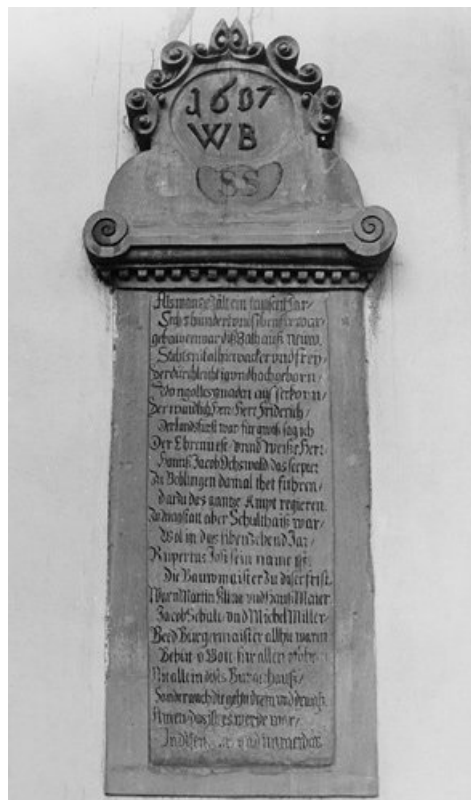 1607
WB
SS
Als man gezält ein tausent Jar/
Sechshundert und siben fürwar
gebauwen war diß Rathauß neuw
Steht mital hie wacker und frey/
der durchleichtig und hochgeborn/
Von gottes gnaden ausserkorn/
Der Herr Friderich/
Der landsfürst war für gwiß sag ich
Der Ehrnvest/ vnnd Weiße Herr
Hannß Jacob Ochswald das scepter
Zu Böblingen damal thet führen/
darzu das gantze Ampt regieren.
Zu magstatt aber Schulthaiß war/
Wol in das sibenzehend Jar/
Rupertus Josi sein name ist.
Die Bauwmaister zu diser frist.
Warn Martin und Hanß Maier
Jacob Schule/ und Michel Miller/
Beed Burgermaister allhie warn
Behüt o Gott für allen
Nit allein dises Burgerhauß/
Sonder auch die gehn drein und drauß
Amen/ das es werde war/